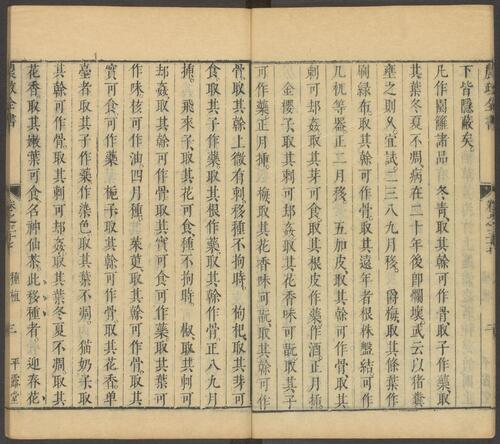 下皆隱蔽矣。
凡作園籬諸品 冬靑、取其幹可作骨取子作藥、取
其葉冬夏不凋、病在二十年後卽爛壞、或云以猪糞
壅之則久。宜試。二三八九月移。 爵梅、取其條葉作
刷綠布。取其幹可作骨。取其遠年者根株盤結、可作
几杌等器。正二月移。 五加皮、取其幹可作骨、取其
刺可却姦、取其芽可食、取其根皮作藥、作酒、正月揷。
金櫻子、取其刺可却姦、取其花香味可翫、取其子
可作藥、正月揷。 梅、取其花香味可翫、取其幹可作
骨、取其幹上微有刺、移種不拘時。 枸杞、取其芽可
食、取其子可作藥、取其根作藥、取其幹作骨。正八九月
揷。 飛來子、取其花可食、種不拘時。 椒、取其刺可
却姦、取其幹可作骨、取其實可食、可
作味、核可作油、四月種。 茱萸、取其幹可作骨。取其
實可食、可作藥。 梔子、取其幹可作骨、取其花香、單
臺者取其子作藥、作染色、取其葉不凋。 猫奶子、取
其幹可作骨、取其刺可却姦、取其葉冬夏不凋、取其
花香、取其嫩葉可食、名神仙茶。此移種者 迎春花、
農政全書 卷之三十七 種植 三 平露堂